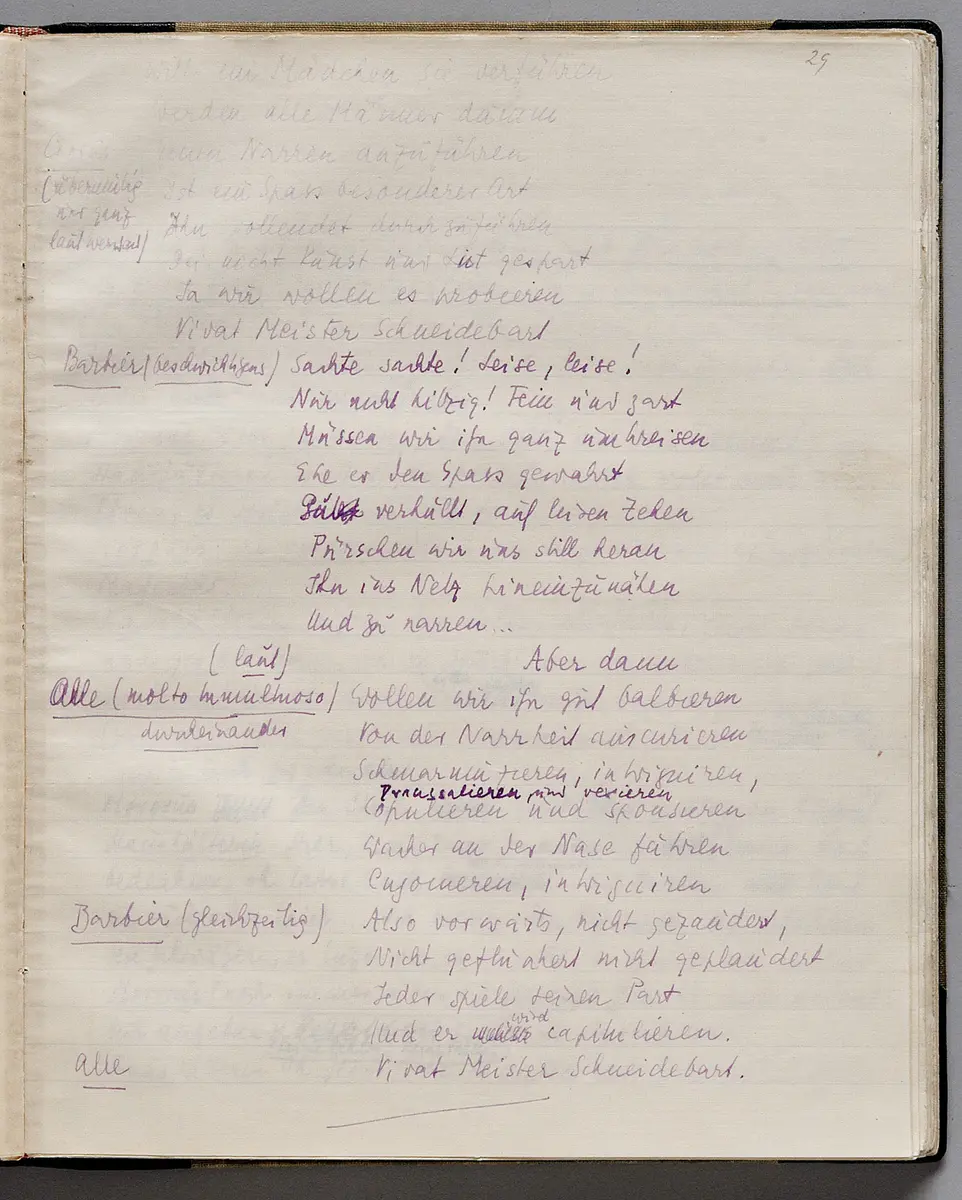 29
will ein Mädchen sie verführen
Werden alle Männer daran
Chorus einen Narren anzuführen
(übermütig Ist ein Spass besonderer Art
und ganz Ihn vollendet durchzuführen
laut werdend) Sei nicht Kunst und List gespart
Ja wir wollen es probieren
Vivat Meister Schneidebart
Barbier (beschwichtigend) Sachte sachte! Leise, leise!
Nur nicht hitzig! Fein und zart
Müssen wir ihn ganz umkreisen
Ehe er den Spass gewahrt
verhüllt, auf leisen Zehen
Pürschen wir uns still heran
Ihn ins Netz hineinzunähen
Und zu narren...
(laut) Aber dann
Alle (molto tumultuoso) Wollen wir ihn gut balbieren
durcheinander Von der Narrheit auscurieren
Scharmützieren, intriguiren,
Drangsalieren und vexieren
Copulieren und sponsieren
Wacker an der Nase führen
Cujonieren, intriguiren
Barbier (gleichzeitig) Also vorwärts, nicht gezaudert,
Nicht geflunkert nicht geplaudert
Jeder spiele seinen Part
wird
Und er capitulieren.
Alle Vivat Meister Schneidebart.